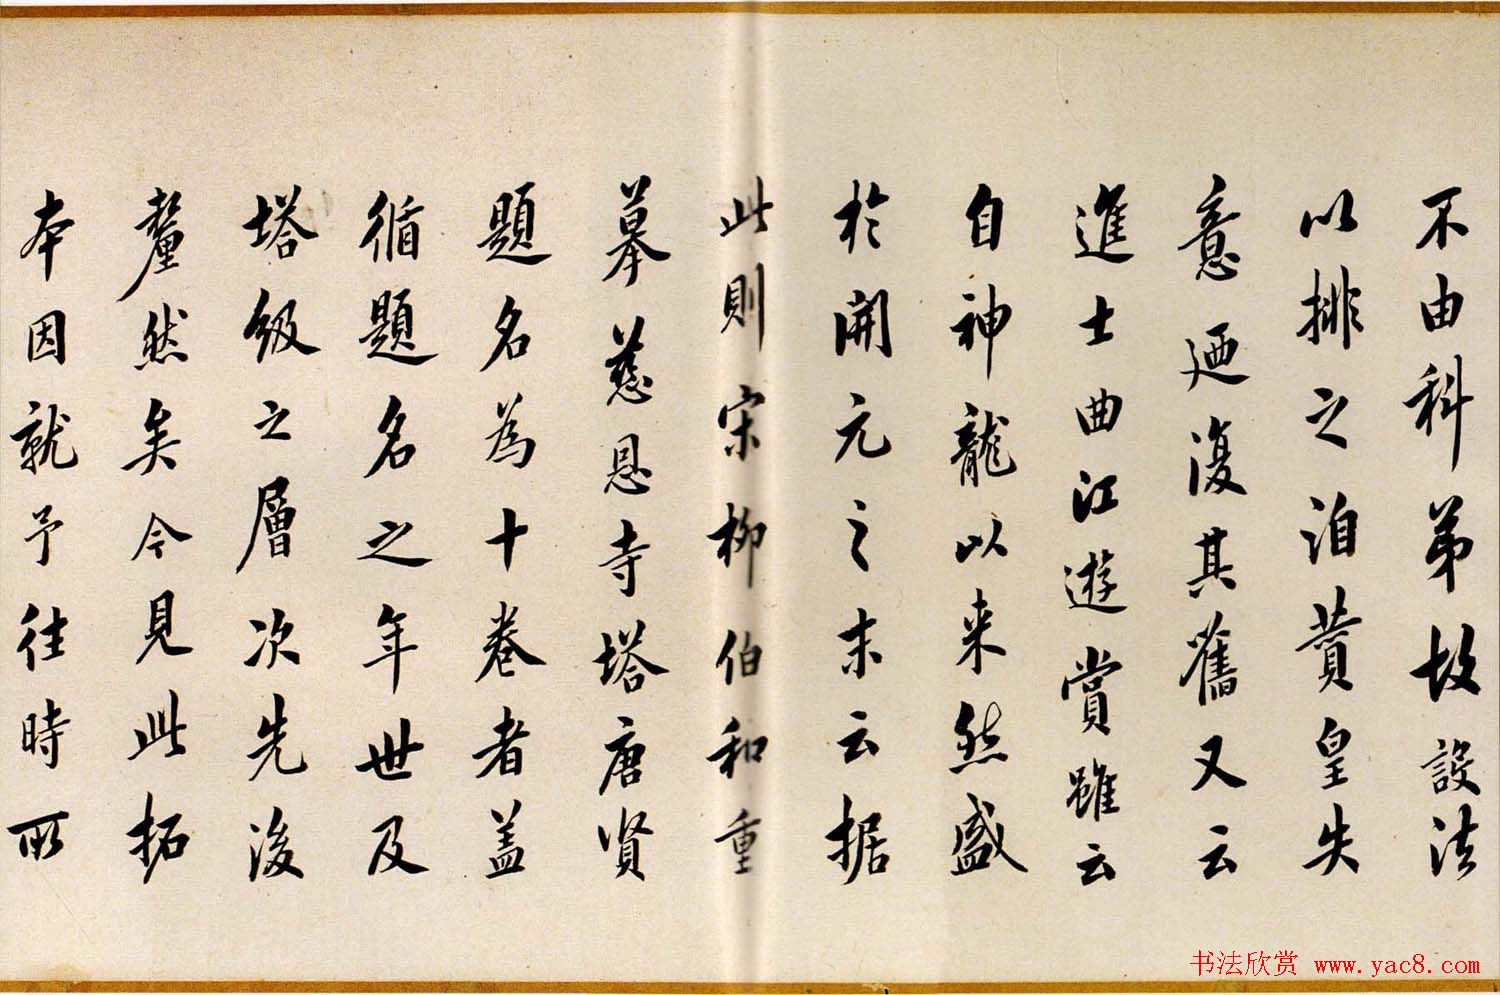 不由科弟故設法
以排之洎賁皇失
意廼復其舊又云
進士曲江遊賞雖云
自神龍以来然盛
於開元之末云據
此則宋柳伯和重
摹慈恩寺塔唐賢
題名為十卷者盖
循題名之年世及
塔級之層次先後
釐然矣今見此拓
本因就予往時所
书法欣赏 www.yac8.com